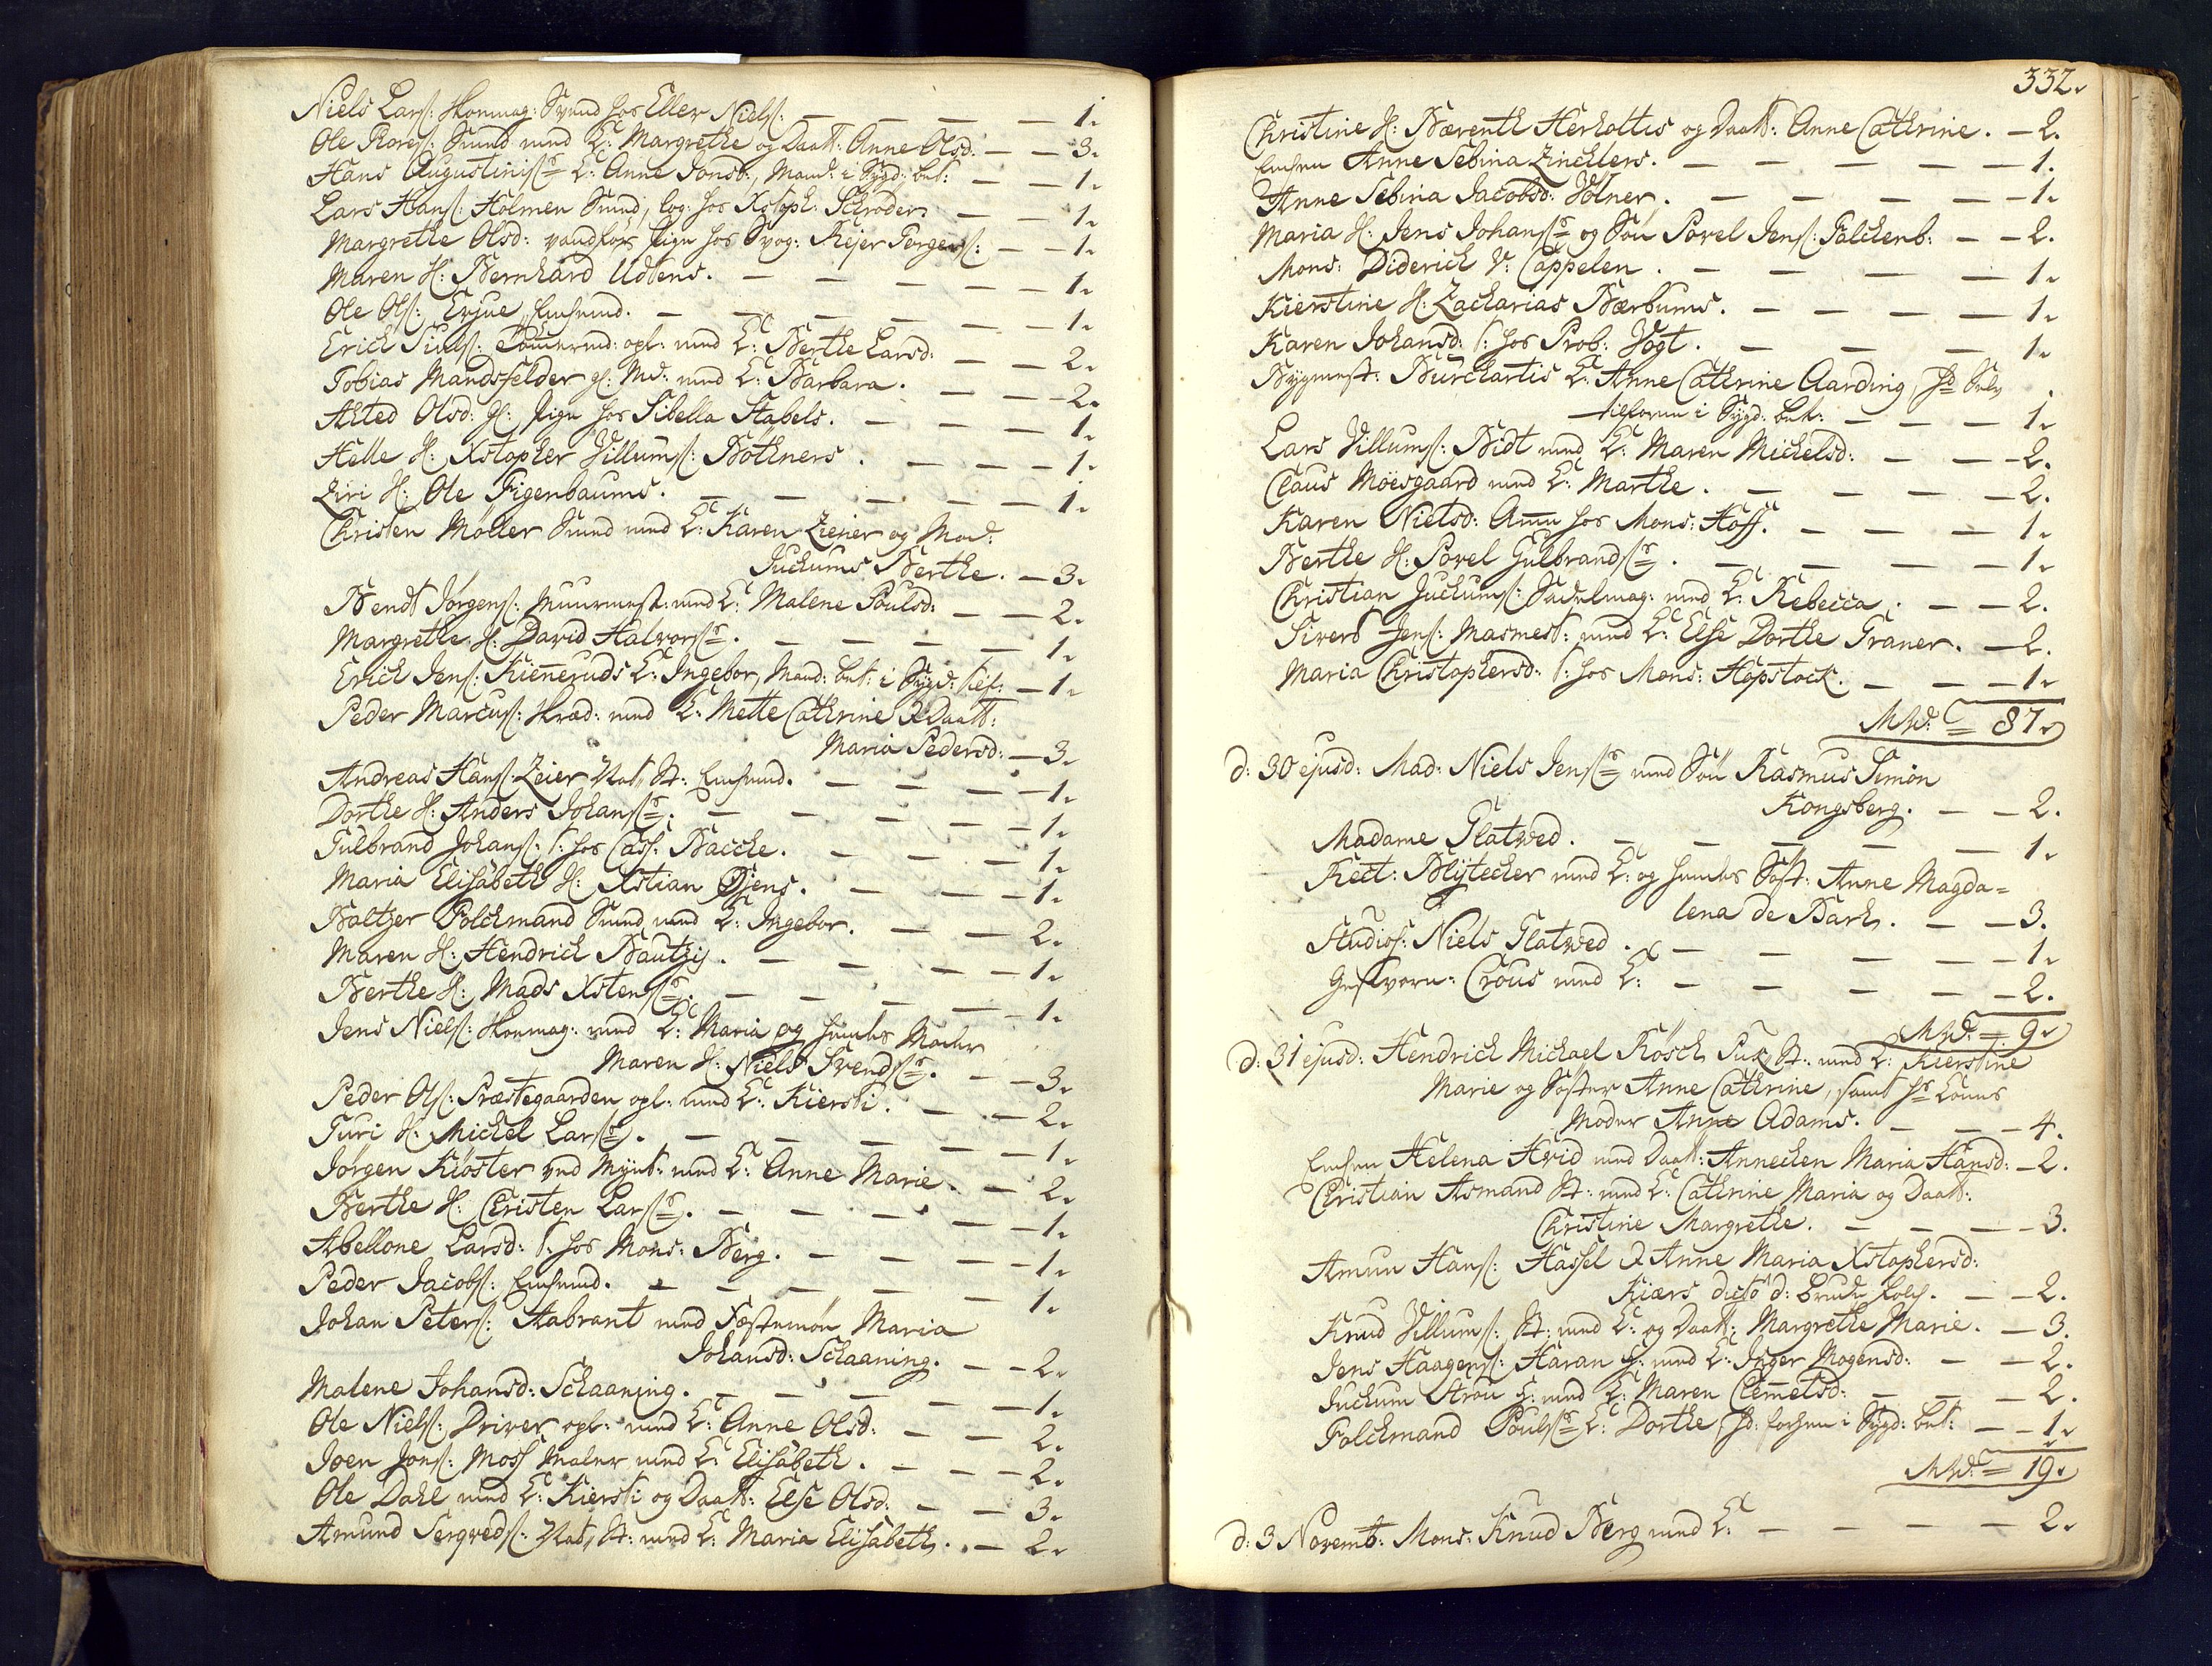 Niels Larsß: Skomag: Svend hos Eller Nielß: — — — — 1.
Ole Roreß: Smed med K: Margrethe og Daatt: Anne Olsd: — — 3.
Hans Augustiniß K: Anne Jonsd:, Mand: i Sygd: bet: — — 1.
Lars Hanß: Holmen Smed, log: hos Xstoph: Schrøder. — — 1.
Margrethe Olsd: vandfør Pige hos Svog: Rejer Jørgenß: — — 1.
Maren H: Bernhard Udbens. — — — — 1.
Ole Olß: Erjue, Enchmd. — — — — 1.
Erich Siulß: Tømermd: opl: med K: Berthe Larsd: — — 2.
Tobias Mandsfelder gl: Md: med K: Barbara. — — 2.
Asted Olsd: gl: Pige hos Sibella Stabels. — — — 1.
Helle H: Xstopher Villumß: Bøthners. — — — 1.
Ziri H: Ole Figenbaums. — — — — 1.
Christen Møller Smed med K: Karen Zeier og Mod:
Juchums Berthe. — 3.
Bendt Jørgenß: Muurmest: med K: Malene Poulsd: — — 2.
Margrethe H: David Halvorß. — — — — 1.
Erich Jenß: Kieneruds K: Ingebor, Mand: bet: i Sygd: — 1.
Peder Marcuß: Skræd: med K: Mette Cathrine & Daatt:
Maria Pedersd: — 3.
Andreas Hanß: Zeier Nat, St: Enchmd. — — — 1.
Dorthe H: Anders Johanß. — — — — 1.
Gulbrand Johanß: T: hos Cass: Bacche. — — — 1.
Maria Elisabeth H: Xstian Øjens. — — — 1.
Baltzer Folchmand Smed med K: Ingebor. — — 2.
Maren H: Hendrich Bautzig. — — — — 1.
Berthe H: Mads Xstenß. — — — — 1.
Jens Nielß: Skomag: med K: Maria og hendes Moder
Maren H: Niels Svendß. — — 3.
Peder Olß: Præstegaarden opl: med K: Kiersti. — — 2.
Turi H: Michel Larß. — — — — 1.
Jørgen Kløster ved Mynt: med K: Anne Marie. — 2.
Berthe H: Christen Larß. — — — — 1.
Abellone Larsd: T: hos Mons: Berg. — — — 1.
Peder Jacobß: Enchmd. — — — — 1.
Johan Peterß: Stabrant med Festemøe Maria
Johansd: Schaaning. — — 2.
Malene Johansd: Schaaning. — — — — 1.
Ole Nielß: Driver opl: med K: Anne Olsd: — — 2.
Joen Jonß: Moss Maler med K: Elisabeth. — — — 2.
Ole Dahl med K: Kiersti og Daatt: Else Olsd: — — 3.
Amund Sergvedß: Nat, St: med K: Maria Elisabeth. — 2.
332.
Christine H: Bærenth Herholttis og Daatt: Anne Cathrine. — 2.
Enchen Anne Sebina Zinchlers. — — — — 1.
Anne Sebina Jacobsd: Völner. — — — — 1.
Maria H: Jens Johanß og Søn Povel Jenß: Falckenb: — — 2.
Mons: Diderich V: Cappelen. — — — — 1.
Kierstine H: Zacharias Bærbums. — — — 1.
Karen Johansd: T: hos Prob: Vogt. — — — 1.
Bygmest: Burchartis K: Anne Cathrine Aarding, hd Selv
tilforne i Sygd: bet: — — — 1.
Lars Villumß: Bidt med K: Maren Michelsd: — — 2.
Claus Møesgaard med K: Marthe. — — — — 2.
Karen Nielsd: Ame hos Mons: Hoff. — — — 1.
Berthe H: Povel Gulbrandß. — — — — 1.
Christian Juchumß: Sadelmag: med K: Rebecca. — — 2.
Sivert Jenß: Masmest: med K: Else Dorthe Traner. — 2.
Maria Christophersd: T: hos Mons: Hopstock. — — 1.
Mhd: = 87.
d: 30 ejusd: Mad: Niels Jenß med Søn Rasmus Simon
Kongsberg. — — 2.
Madame Flatved. — — — — 1.
Rect: Blytecher med K: og hendes Søst: Anne Magda=
lena de Bark. — — 3.
Studios: Niels Flatved. — — — — 1.
Gesvorn: Crous med K: — — — — 2.
Mhd: = 9.
d: 31 ejusd: Hendrich Michael Rösch Puk, St: med K: Kierstine
Marie og Søster Anne Cathrine, samt hs Kones
Moder Anne Adams. — — — 4.
Enchen Helena Hvid med Daatt: Annechen Maria Hansd: — 2.
Christian Asmand St: med K: Cathrine Maria og Daatt:
Christine Margrethe. — — — 3.
Amun Hanß: Hassel & Anne Maria Xstophersd:
Kiærs disse d: Brude folch. — — 2.
Knud Villumß: St: med K: og Daatt: Margrethe Marie. — 3.
Jens Haagenß: Haran H: med K: Inger Mogensd: — — 2.
Juchum Strøu H: med K: Maren Clemetsd: — — 2.
Folchmand Poulß K: Dorthe, hd: forhen i Sygd: bet: — — 1.
Mhd: = 19.
d: 3 Novemb: Mons: Knud Berg med K: — — — — 2.